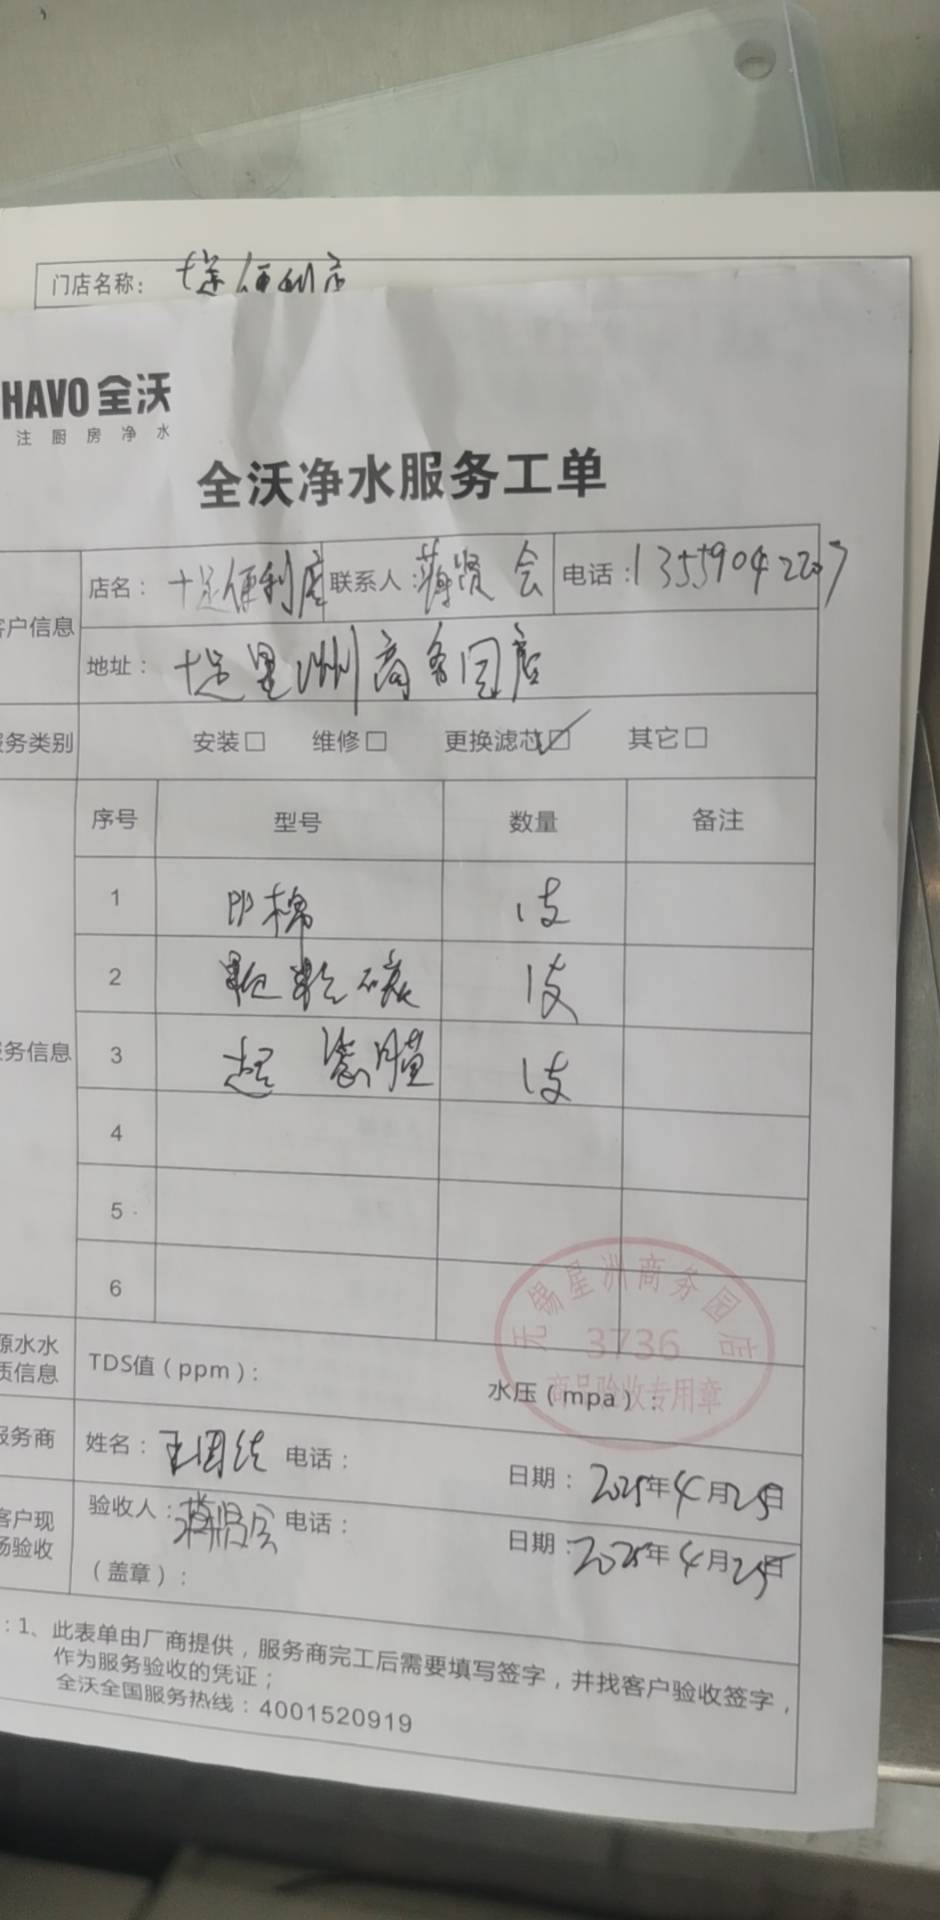 门店名称： 十足便利店
HAVO 全沃
注厨房净水
全沃净水服务工单
客户信息
店名： 十足便利店 联系人：蒋贤会 电话：13559042207
地址： 十足星洲商务园店
服务类别 安装□ 维修□ 更换滤芯☑ 其它□
服务信息
序号 型号 数量 备注
1 PP棉 1支
2 颗粒碳 1支
3 超滤膜 1支
4
5
6
无锡星洲商务园店
3736
商品验收专用章
原水水
质信息
TDS值（ppm）： 水压（mpa）：
服务商 姓名： 电话： 日期：2025年4月25日
客户现
场验收
验收人：蒋贤会 电话： 日期：2025年4月25日
（盖章）：
：1、此表单由厂商提供，服务商完工后需要填写签字，并找客户验收签字，
作为服务验收的凭证；
全沃全国服务热线：4001520919